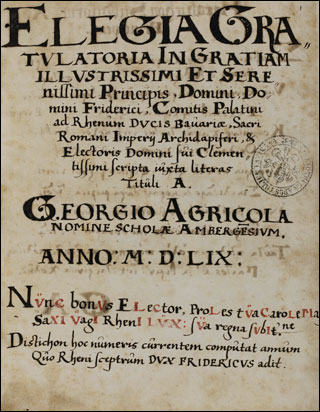 ELEGIA GRA„
TVLATORIA IN GRATIAM
ILLVSTRISSIMI ET SERE
nissimi Principis, Domini, Do„
mini Friderici, Comitis Palatini
ad Rhenum DVCIS Bauariæ, Sacri
Romani Imperij Archidapiferi, &
Electoris Domini sui Clemen„
tissimi scripta iuxta literas
Tituli A.
GEORGIO AGRICOLA
NOMINE SCHOLÆ AMBERGENSIVM.
ANNO: M: D: LIX:
NVnC bonVs ELeCtor, ProLes tVa CaroLe Ma
SaXI VagI RhenI LVX: sVa regna sVbIt. ne
Distichon hoc numeris currentem computat annum
Quo Rheni sceptrum DVX FRIDERICVS adit.